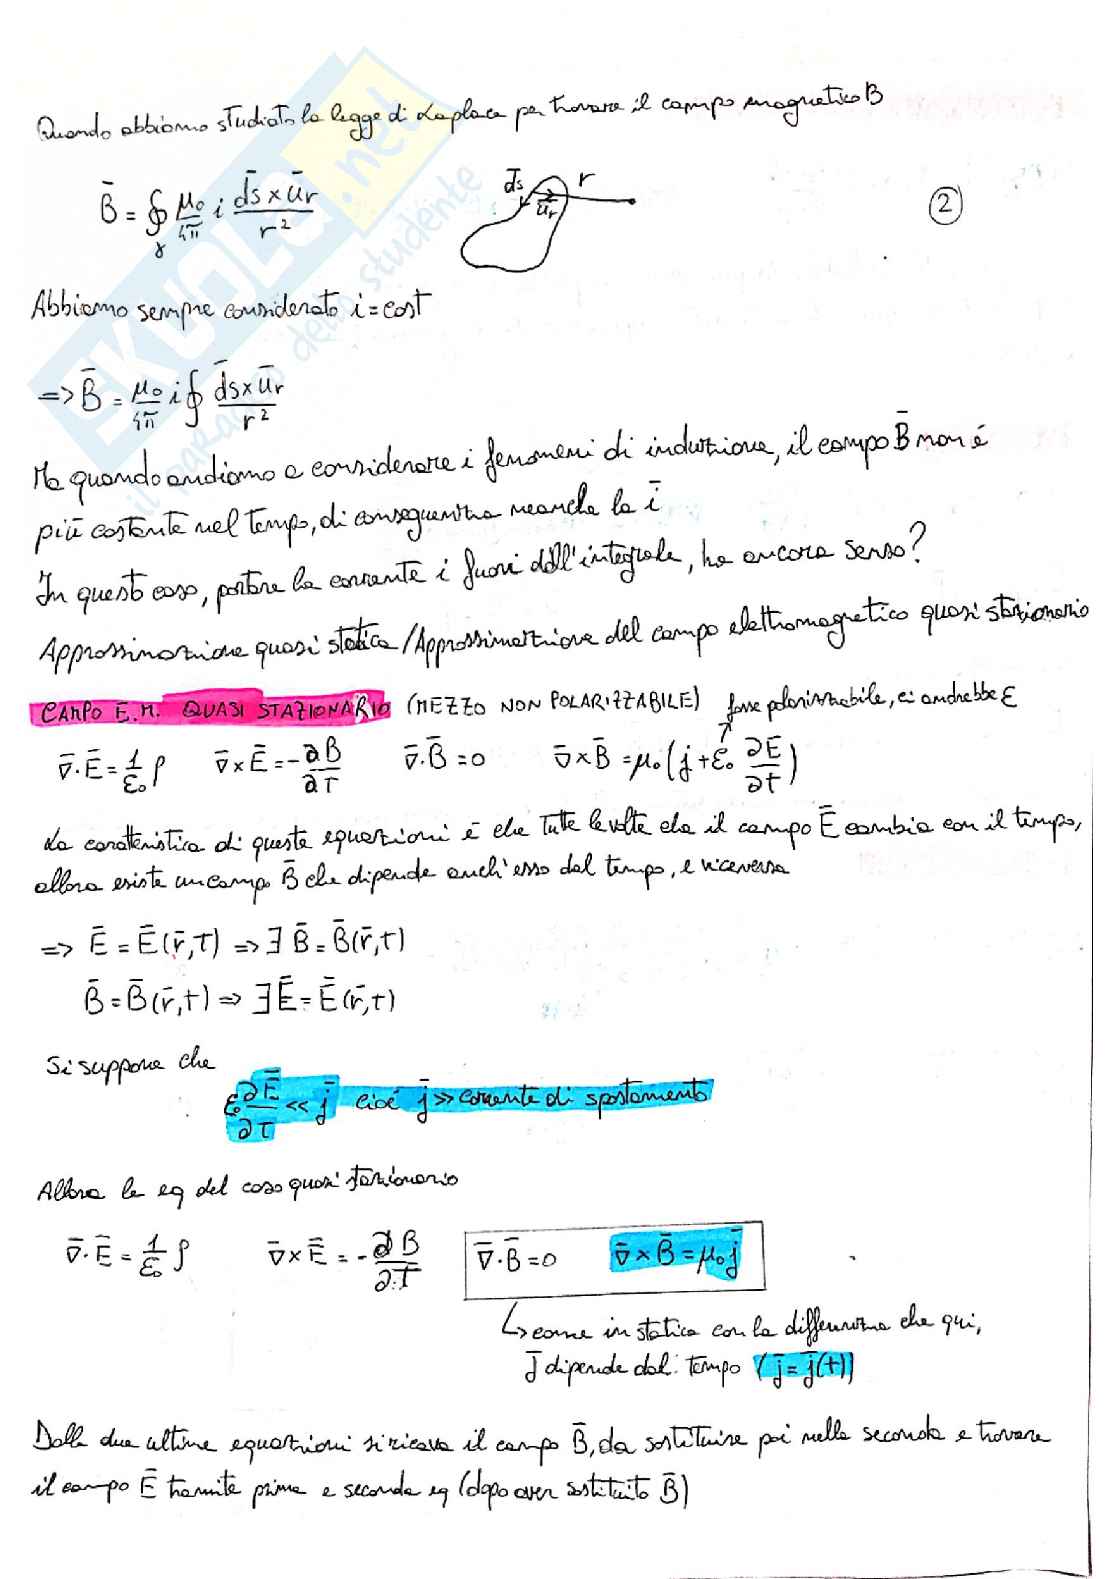 Quando abbiamo studiato la legge di Laplace per trovare il campo magnetico B
B̄ = ∮γ μ₀/4π i d̄s × ūr / r²
d̄s r ūr
2
Abbiamo sempre considerato i = cost
=> B̄ = μ₀/4π i ∮ d̄s × ūr / r²
Ma quando andiamo a considerare i fenomeni di induzione, il campo B̄ non é
più costante nel tempo, di conseguenza neanche la i
In questo caso, portare la corrente i fuori dall'integrale, ha ancora senso?
Approssimazione quasi statica / Approssimazione del campo elettromagnetico quasi stazionario
CAMPO E.M. QUASI STAZIONARIO (MEZZO NON POLARIZZABILE) fosse polarizzabile, ci andrebbe ε
∇̄·Ē = 1/ε₀ ρ ∇̄×Ē = -∂B̄/∂t ∇̄·B̄ = 0 ∇̄×B̄ = μ₀(j + ε₀ ∂Ē/∂t)
La caratteristica di queste equazioni è che tutte le volte che il campo Ē cambia con il tempo,
allora esiste un campo B̄ che dipende anch'esso dal tempo, e viceversa
=> Ē = Ē(r̄,t) => ∃ B̄ = B̄(r̄,t)
B̄ = B̄(r̄,t) => ∃ Ē = Ē(r̄,t)
Si suppone che
ε₀ ∂Ē/∂t << j̄ cioé j̄ >> corrente di spostamento
Allora le eq del caso quasi stazionario
∇̄·Ē = 1/ε₀ ρ ∇̄×Ē = -∂B/∂t ∇̄·B̄ = 0 ∇̄×B̄ = μ₀j̄
↳ come in statica con la differenza che qui,
j̄ dipende dal tempo (j̄ = j̄(t))
Dalle due ultime equazioni si ricava il campo B̄, da sostituire poi nella seconda e trovare
il campo Ē tramite prima e seconda eq (dopo aver sostituito B̄)
SKUOLA.net
il paradiso dello studente